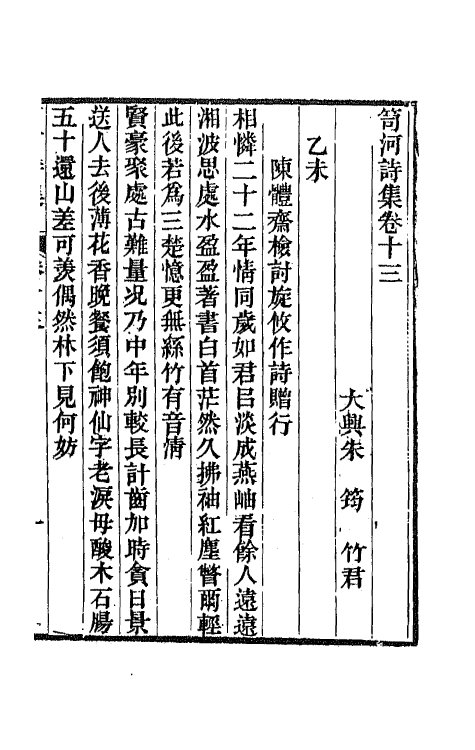 笥河詩集卷十三
大興朱 筠 竹君
乙未
陳體齋檢討旋攸作詩贈行
相憐二十二年情同歲如君呂淡成燕岫看餘人遠遠
湘波思處水盈盈著書白首茫然久拂袖紅塵瞥爾輕
此後若爲三楚憶更無絲竹有音淸
賢豪聚處古難量况乃中年別較長計齒加時貪日景
送人去後薄花香晚餐須飽神仙字老淚毋酸木石腸
五十還山差可羨偶然林下見何妨
一